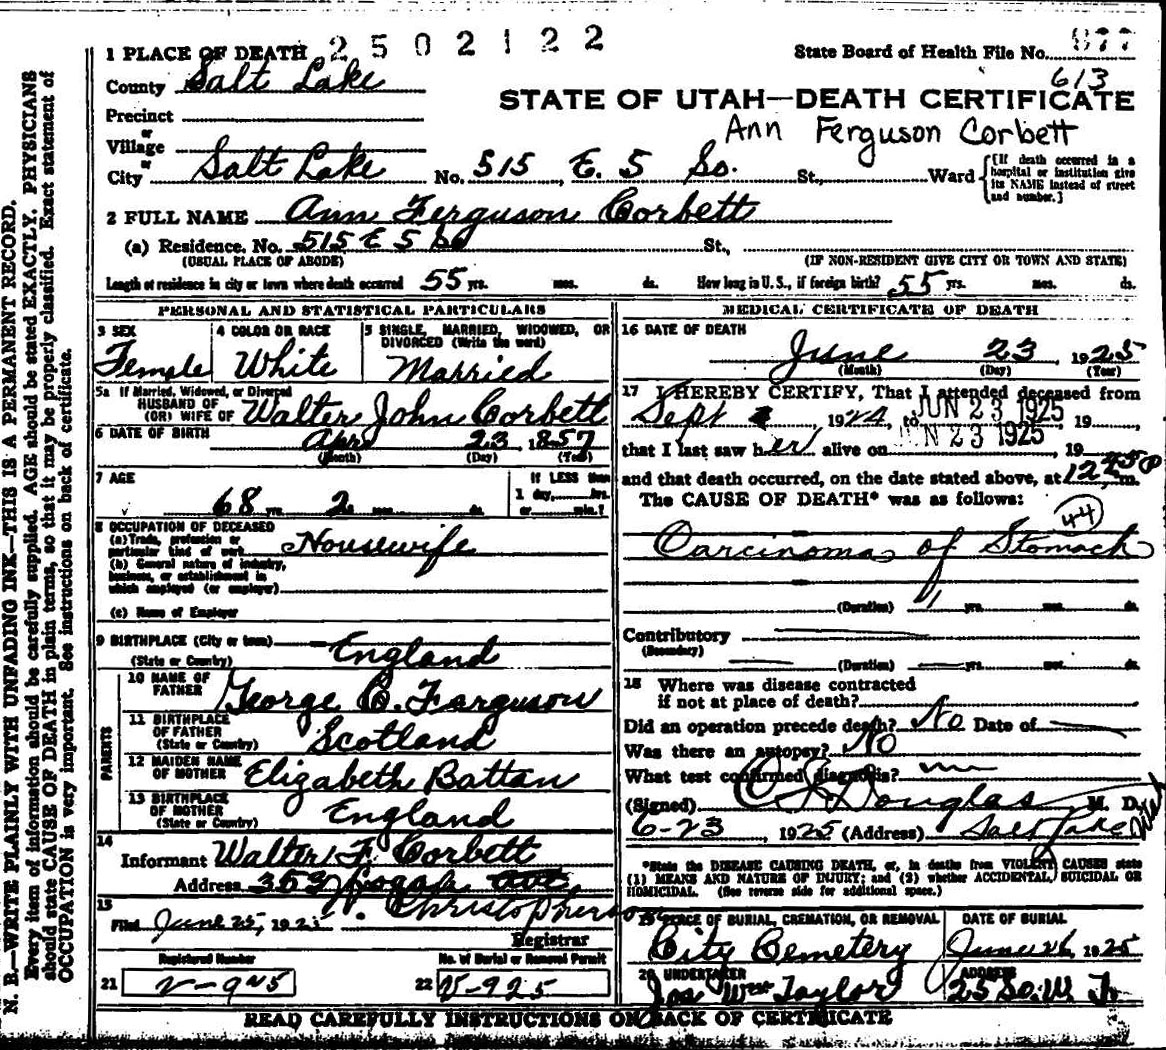 2502122
1 PLACE OF DEATH
State Board of Health File No. 877
613
County Salt Lake
STATE OF UTAH—DEATH CERTIFICATE
Precinct
Ann Ferguson Corbett
or
Village
or
City Salt Lake No. 515 E. 5 So. St., Ward
{[If death occurred in a
hospital or institution give
its NAME instead of street
and number.]
2 FULL NAME Ann Ferguson Corbett
(a) Residence. No. 515 E 5 So St.,
(USUAL PLACE OF ABODE) (IF NON-RESIDENT GIVE CITY OR TOWN AND STATE)
Length of residence in city or town where death occurred 55 yrs. mos. ds. How long in U. S., if foreign birth? 55 yrs. mos. ds.
PERSONAL AND STATISTICAL PARTICULARS
3 SEX
Female
4 COLOR OR RACE
White
5 SINGLE, MARRIED, WIDOWED, OR
DIVORCED (Write the word)
Married
5a If Married, Widowed, or Divorced
HUSBAND OF
(OR) WIFE OF Walter John Corbett
6 DATE OF BIRTH Apr 23, 1857
(Month) (Day) (Year)
7 AGE
68 yrs. 2 mos. ds.
If LESS than
1 day, hrs.
or min.?
8 OCCUPATION OF DECEASED
(a) Trade, profession or
particular kind of work Housewife
(b) General nature of industry,
business, or establishment in
which employed (or employer)
(c) Name of Employer
9 BIRTHPLACE (City or town)
(State or Country) England
PARENTS
10 NAME OF
FATHER George C. Ferguson
11 BIRTHPLACE
OF FATHER
(State or Country) Scotland
12 MAIDEN NAME
OF MOTHER Elizabeth Battan
13 BIRTHPLACE
OF MOTHER
(State or Country) England
14
Informant Walter F. Corbett
Address 353 Logan Ave.
15
Filed June 25, 1925 Christopherson
Registrar
Registered Number
21 V-945
No. of Burial or Removal Permit
22 V-925
MEDICAL CERTIFICATE OF DEATH
16 DATE OF DEATH
June 23, 1925
(Month) (Day) (Year)
17 I HEREBY CERTIFY, That I attended deceased from
Sept 1924, to JUN 23 1925, 19
that I last saw her alive on JUN 23 1925, 19
and that death occurred, on the date stated above, at 12 45 P m.
The CAUSE OF DEATH* was as follows:
44
Carcinoma of Stomach
(Duration) 1 yrs. mos. ds.
Contributory
(Secondary)
(Duration) yrs. mos. ds.
18 Where was disease contracted
if not at place of death?
Did an operation precede death? No Date of
Was there an autopsy? No
What test confirmed diagnosis?
(Signed) Douglas M. D.
6-23, 1925 (Address) Salt Lake Utah
*State the DISEASE CAUSING DEATH, or, in deaths from VIOLENT CAUSES state
(1) MEANS AND NATURE OF INJURY; and (2) whether ACCIDENTAL, SUICIDAL OR
HOMICIDAL. (See reverse side for additional space.)
19 PLACE OF BURIAL, CREMATION, OR REMOVAL
City Cemetery
DATE OF BURIAL
June 26, 1925
20 UNDERTAKER
Jos Wm Taylor
ADDRESS
25 So. W. T.
READ CAREFULLY INSTRUCTIONS ON BACK OF CERTIFICATE
N. B.—WRITE PLAINLY WITH UNFADING INK—THIS IS A PERMANENT RECORD.
Every item of information should be carefully supplied. AGE should be stated EXACTLY. PHYSICIANS
should state CAUSE OF DEATH in plain terms, so that it may be properly classified. Exact statement of
OCCUPATION is very important. See instructions on back of certificate.